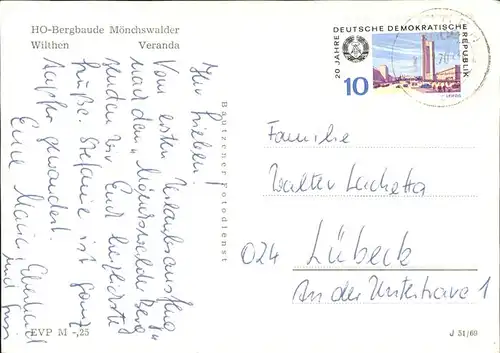 HO-Bergbaude Mönchswalder
Wilthen Veranda
Ihr Lieben!
Vom ersten Urlaubsausflug
nach dem „Mönchswalder Berg"
senden wir Euch herzlichste
Grüße. Stefanie ist ganz
tapfer gewandert.
Eure Maria, Eberhard
und
EVP M -,25
Bautzener Fotodienst
20 JAHRE DEUTSCHE DEMOKRATISCHE REPUBLIK
10
LEIPZIG
Familie
Walter Luchetta
024 Lübeck
An der Untertrave 1
J 51/69